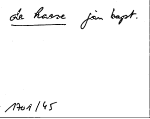 De haese jan bapt.
1701/45